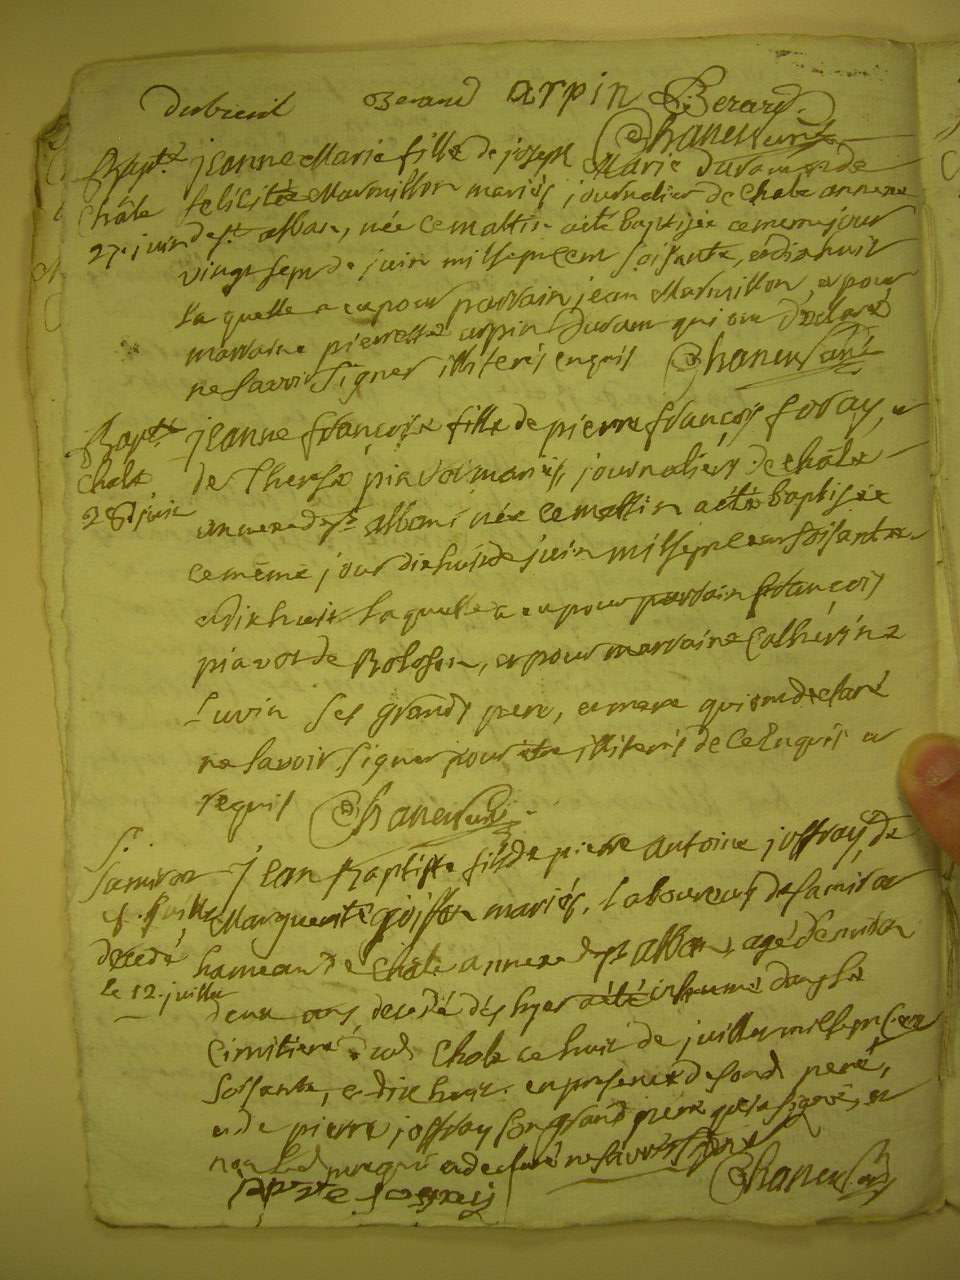 dubreuil Berard arpin Berard
Chaneu curé
Bapt.e jeanne Marie fille de joseph Marie Duram et de
Châle felicitée Marmillon mariés journalier de Chale annexe
27. juin de st. alban, née ce matin a été baptisée ce meme jour
vingt sept de juin mil sept cent soisante, et dix huit
la quelle a eu pour parrain jean Marmillon, et pour
marraine pierrette arpin Duram qui ont declaré
ne savoir signer illiterés enquis Chaneu curé
Bapt.e jeanne françoise fille de pierre françois foray, et
Chale de Therese piavoi mariés, journaliers de châle
28 juin annexe de st alban née ce matin a été baptisée
ce même jour dix huit de juin mil sept cent soisante
et dix huit la quelle a eu pour parrain françois
piavoi de Bolosson, et pour marraine Catherine
Luvin ses grands pere, et mere qui ont declaré
ne savoir signer pour etre illiterés de ce enquis et
requis Chaneu curé
St.
Samiras Jean Baptiste fils de pierre antoine joffray, et de
juillet Marguerite goiffon mariés, laboureurs de samiras
decedé hameau de Châle annexe de st alban, agé d'environ
le 12. juillet deux ans, decedé dés hyer a été inhumé dans le
cimitiere dud. Chale ce huit de juillet mil sept cent
soisante, et dix huit. en presence de sond. pere,
et de pierre joffray son grand pere qui a signé, et
non led. pere qui a declaré ne savoir signer
Chaneu curé